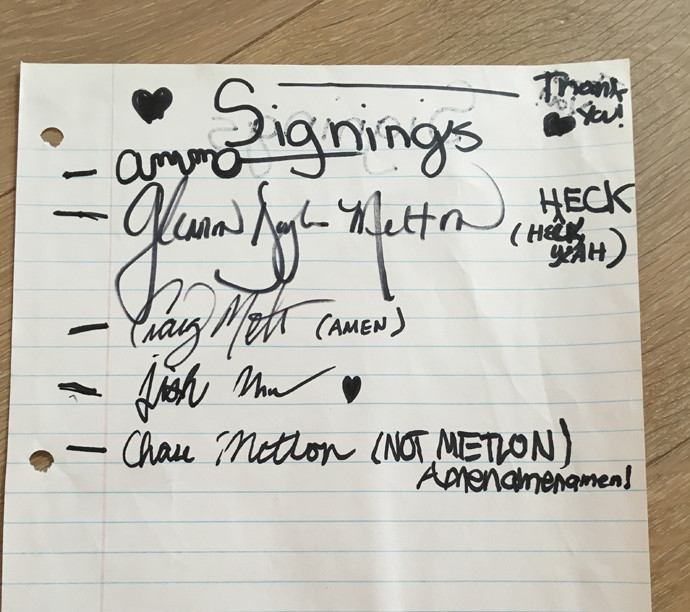 Signings
Thank
You!
amma
Glennon Doyle Melton
HECK
(HECK
YEAH)
Craig Melt (AMEN)
Tish
Chase Melton (NOT METLON)
Amenamenamen!